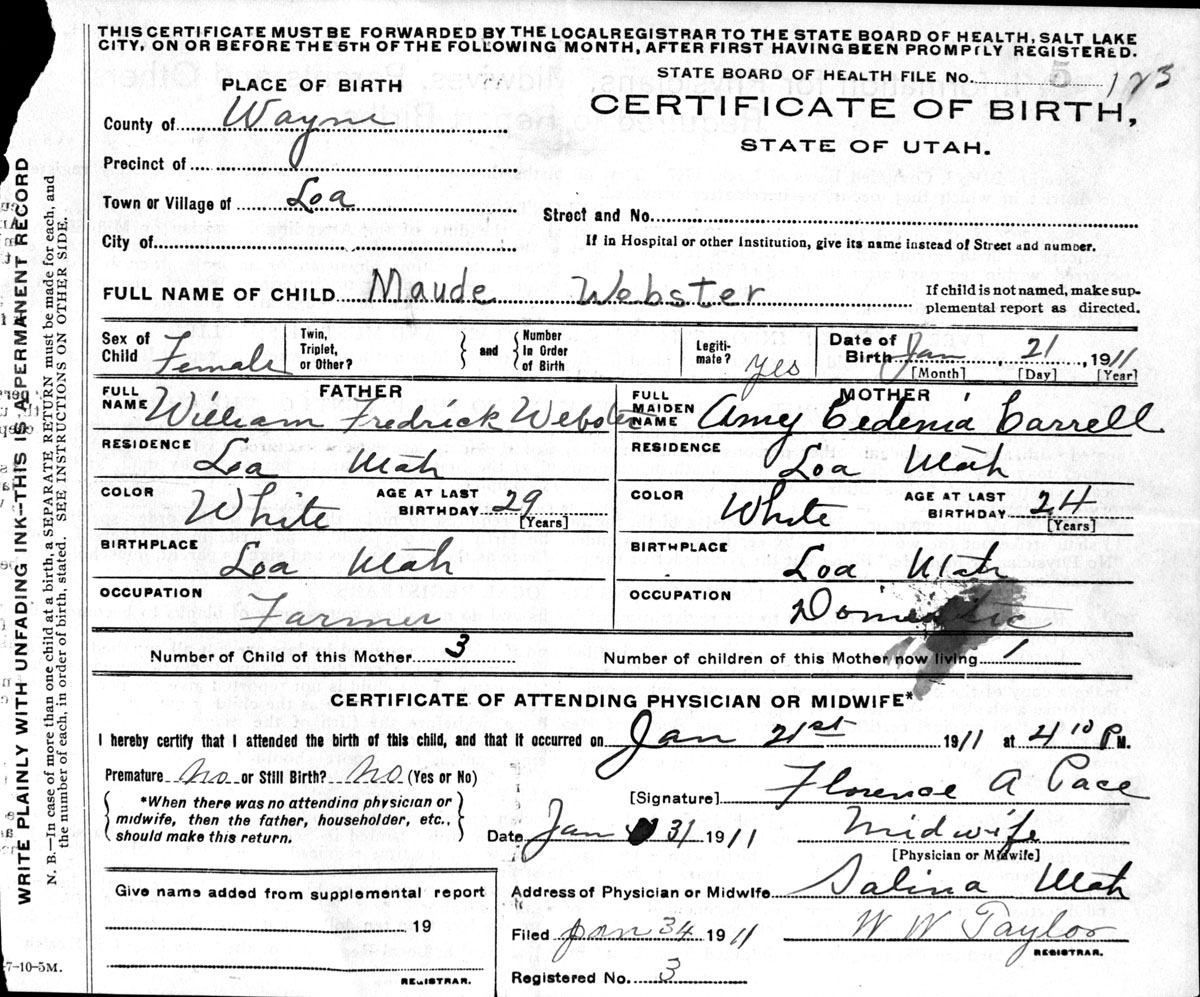 THIS CERTIFICATE MUST BE FORWARDED BY THE LOCALREGISTRAR TO THE STATE BOARD OF HEALTH, SALT LAKE
CITY, ON OR BEFORE THE 5TH OF THE FOLLOWING MONTH, AFTER FIRST HAVING BEEN PROMPTLY REGISTERED.
STATE BOARD OF HEALTH FILE No. 5 123
PLACE OF BIRTH
CERTIFICATE OF BIRTH,
STATE OF UTAH.
County of Wayne
Precinct of
Town or Village of Loa
Street and No.
City of
If in Hospital or other Institution, give its name instead of Street and number.
FULL NAME OF CHILD Maude Webster
If child is not named, make sup-
plemental report as directed.
Sex of Child Female
Twin, Triplet, or Other?
and
Number In Order of Birth
Legiti-mate? yes
Date of Birth Jan 21, 1911
[Month] [Day] [Year]
FATHER
FULL NAME William Fredrick Webster
MOTHER
FULL MAIDEN NAME Amy Cedenia Carrell
RESIDENCE Loa Utah
RESIDENCE Loa Utah
COLOR White AGE AT LAST BIRTHDAY 29 [Years]
COLOR White AGE AT LAST BIRTHDAY 24 [Years]
BIRTHPLACE Loa Utah
BIRTHPLACE Loa Utah
OCCUPATION Farmer
OCCUPATION Domestic
Number of Child of this Mother 3
Number of children of this Mother now living 1
CERTIFICATE OF ATTENDING PHYSICIAN OR MIDWIFE*
I hereby certify that I attended the birth of this child, and that it occurred on Jan 21st 1911 at 4 10 P M.
Premature No or Still Birth? No (Yes or No)
*When there was no attending physician or
midwife, then the father, householder, etc.,
should make this return.
[Signature] Florence A Pace
Date Jan 31 1911
Midwife
[Physician or Midwife]
Address of Physician or Midwife Salina Utah
Give name added from supplemental report
19
REGISTRAR.
Filed Jan 34 1911
W W Taylor
REGISTRAR.
Registered No. 3
7-10-5M.
WRITE PLAINLY WITH UNFADING INK--THIS IS A PERMANENT RECORD
N. B.—In case of more than one child at a birth, a SEPARATE RETURN must be made for each, and
the number of each, in order of birth, stated. SEE INSTRUCTIONS ON OTHER SIDE.